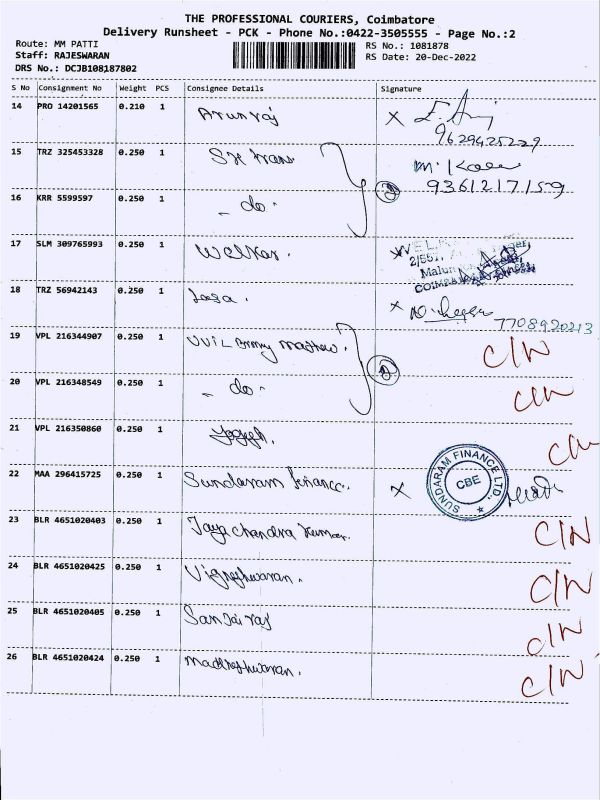 THE PROFESSIONAL COURIERS, Coimbatore
Delivery Runsheet - PCK - Phone No.:0422-3505555 - Page No.:2
Route: MM PATTI
RS No.: 1081878
Staff: RAJESWARAN
RS Date: 20-Dec-2022
DRS No.: DCJB108187802
S No Consignment No Weight PCS Consignee Details Signature
14 PRO 14201565 0.210 1 Arun raj X
9629425229
15 TRZ 325453328 0.250 1 M. 
9361217159
16 KRR 5599597 0.250 1 - do - 2
17 SLM 309765993 0.250 1 X
18 TRZ 56942143 0.250 1 X
7708920213
19 VPL 216344907 0.250 1 C/N
20 VPL 216348549 0.250 1 - do - 2 C/N
21 VPL 216350860 0.250 1 Yogesh. C/N
22 MAA 296415725 0.250 1 Sundaram finance. X SUNDARAM FINANCE LTD. CBE
23 BLR 4651020403 0.250 1 Jaya chandra kumar. C/N
24 BLR 4651020425 0.250 1 Vigneshwaran. C/N
25 BLR 4651020405 0.250 1 Sanjai raj C/N
26 BLR 4651020424 0.250 1 Madheshwaran. C/N